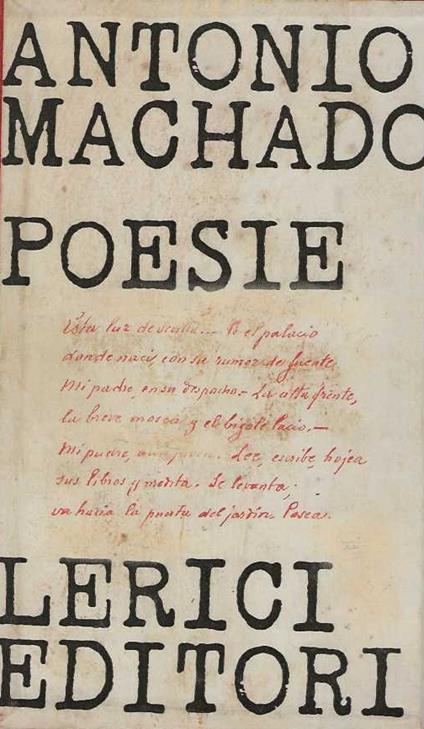 ANTONIO
MACHADO
POESIE
Esta luz de Sevilla... Es el palacio
donde nací, con su rumor de fuente.
Mi padre, en su despacho.- La alta frente,
la breve mosca y el bigote lacio.-
Mi padre, aun joven. Lee, escribe, hojea
sus libros, y medita. Se levanta,
va hacia la puerta del jardín. Pasea.
LERICI
EDITORI